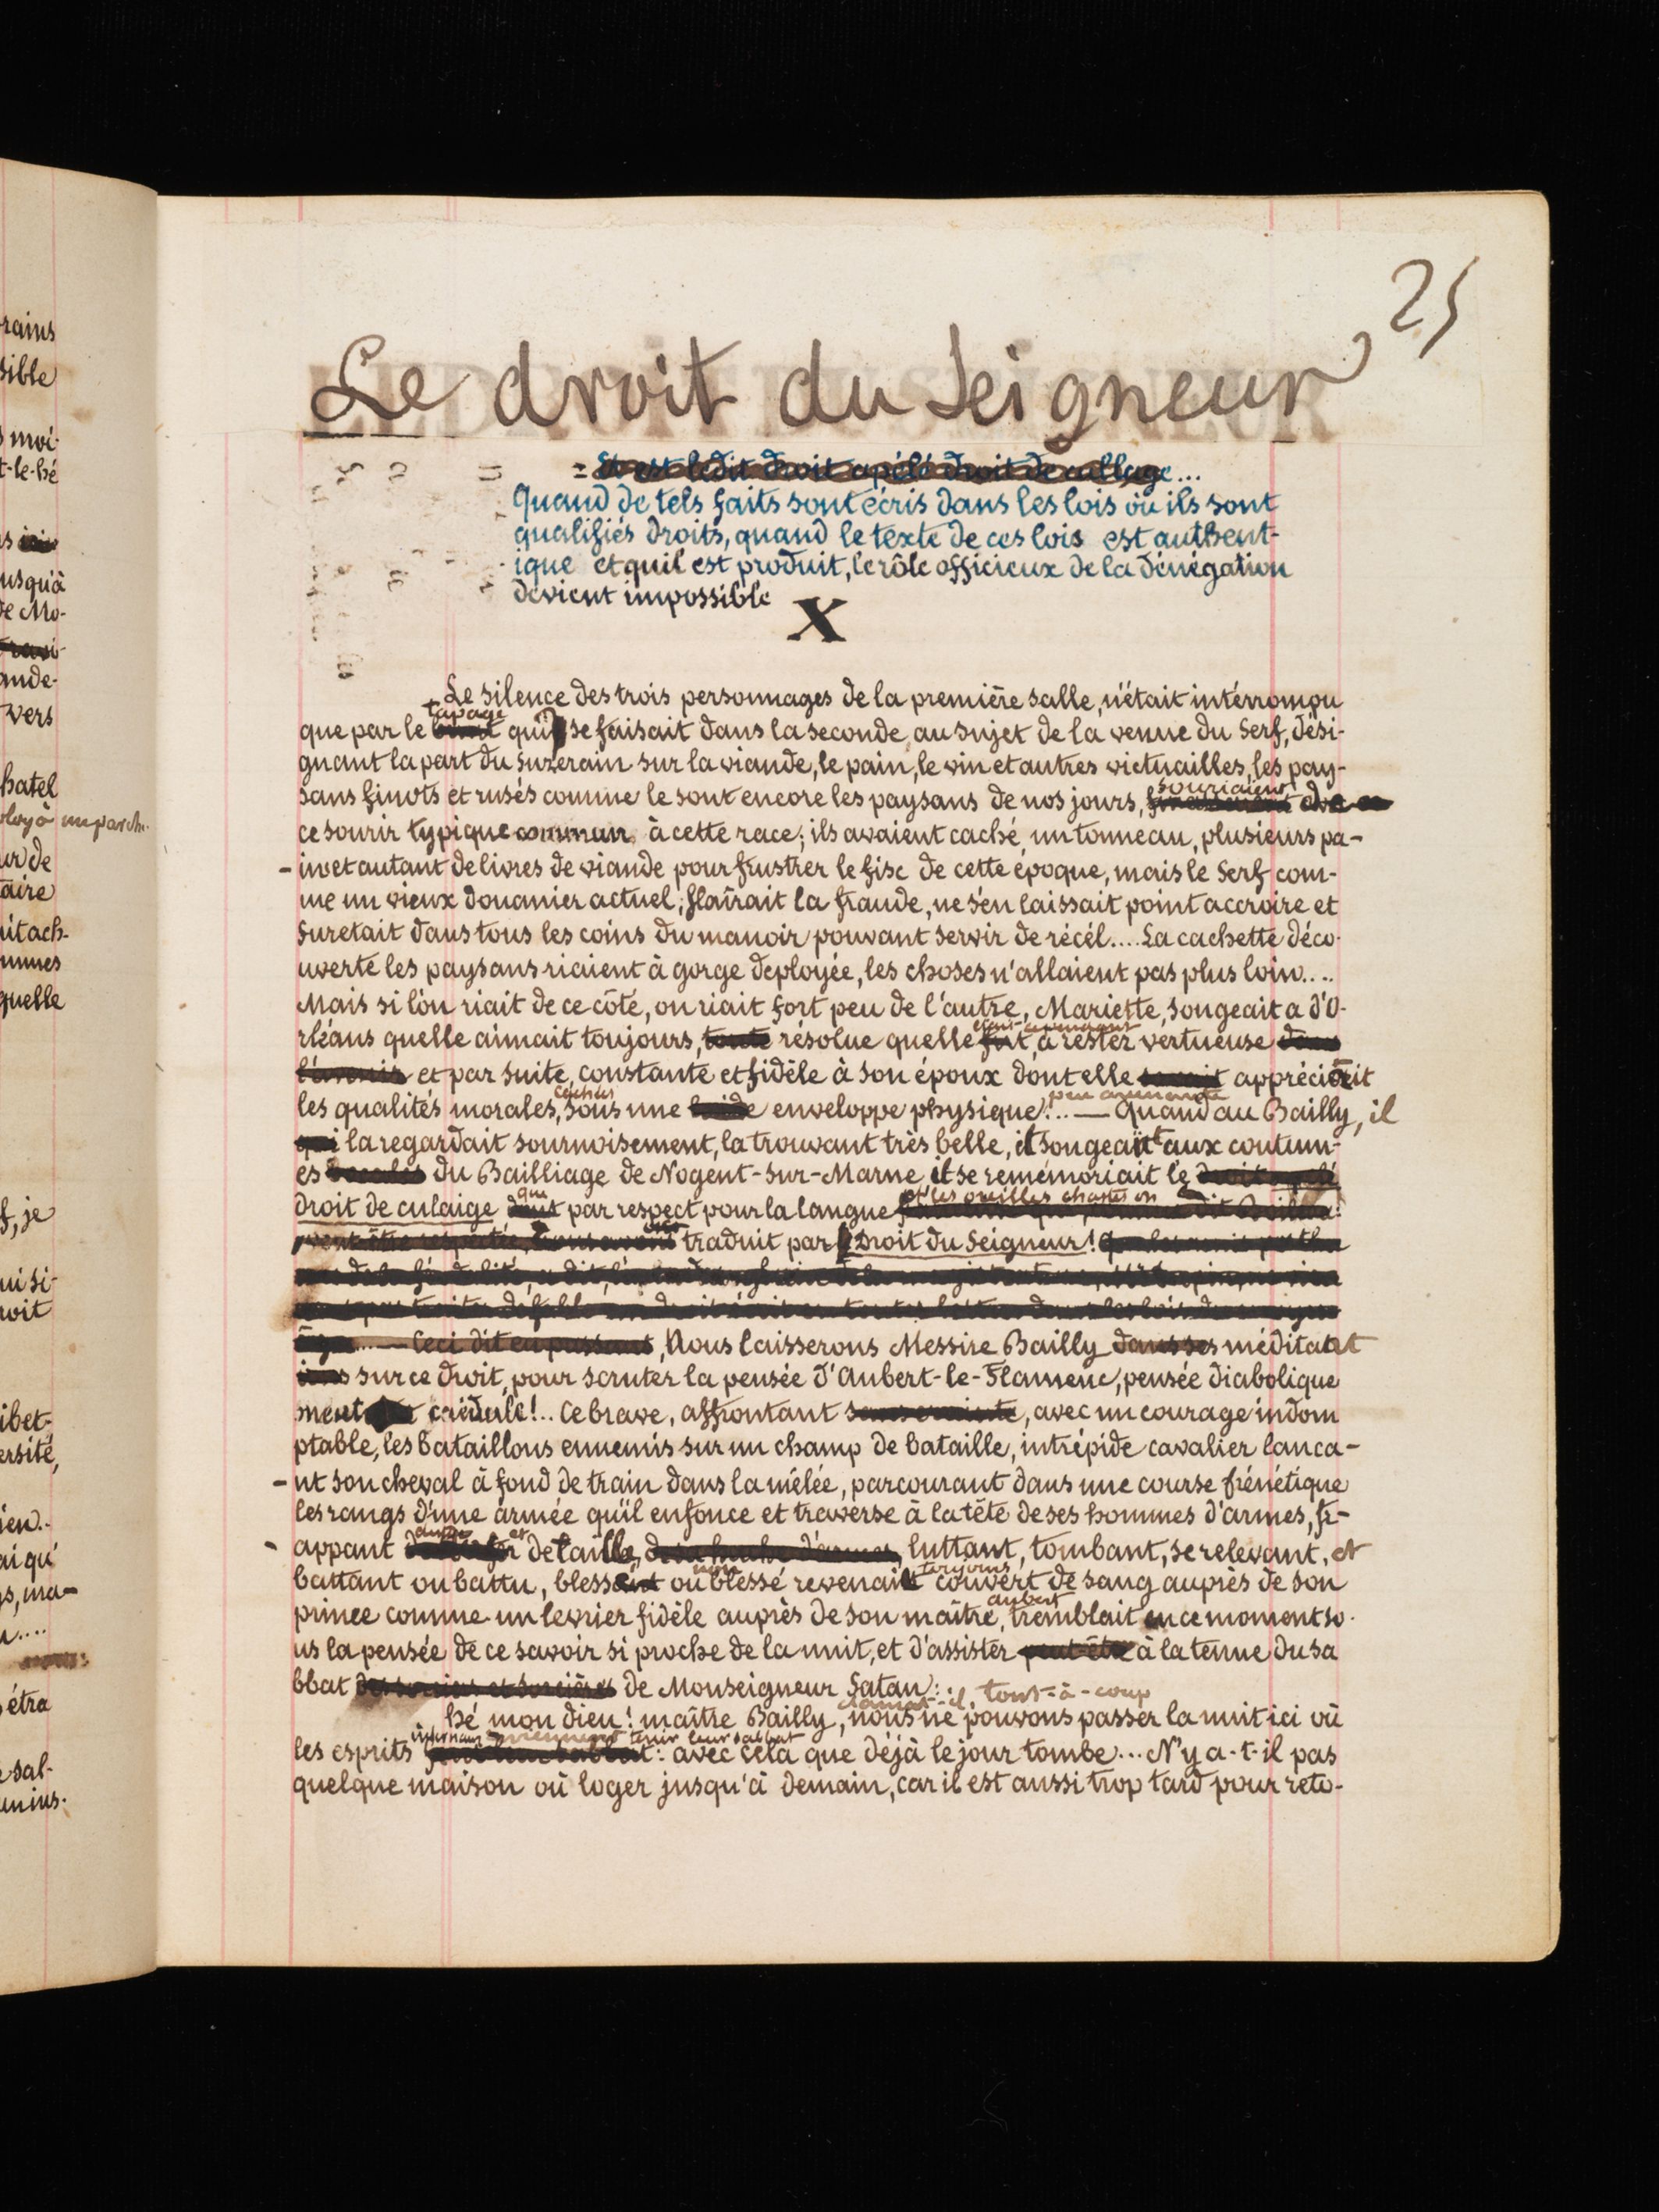 25
Le droit du Seigneur
= Et est ledit droit apélé droit de cullage...
Quand de tels faits sont écris dans les lois où ils sont
qualifiés droits, quand le texte de ces lois est authent-
ique et quil est produit, le rôle officieux de la dénégation
devient impossible
X
Le silence des trois personnages de la première salle, n'était intérrompu
tapage
que par le bruit qui se faisait dans la seconde, au sujet de la venue du Serf, dési-
gnant la part du Suzerain sur la viande, le pain, le vin et autres victuailles, les pay-
souriaient
sans finots et rusés comme le sont encore les paysans de nos jours,
ce sourir typique commun à cette race; ils avaient caché un tonneau, plusieurs pa-
- in et autant de livres de viande pour frustrer le fisc de cette époque, mais le Serf com-
me un vieux douanier actuel, flairait la fraude, ne s'en laissait point accroire et
furetait dans tous les coins du manoir pouvant servir de récél.... La cachette déco-
uverte les paysans riaient à gorge deployée, les choses n'allaient pas plus loin....
Mais si l'on riait de ce côté, on riait fort peu de l'autre, Mariette, songeait a d'O-
rléans quelle aimait toujours, toute résolue quelle fut, à rester vertueuse dans
l'avenir et par suite, constante et fidèle à son époux dont elle savait appréciait
cachées
peu avenante
les qualités morales, sous une laide enveloppe physique!.. — Quand au Bailly, il
qui la regardait sournoisement, la trouvant très belle, il songeait aux coutum-
es du Bailliage de Nogent-sur-Marne, il se remémoriait le
que
et les oreilles chastes on
droit de culaige dont par respect pour la langue
traduit par le Droit du Seigneur!
Ceci dit en passant, Nous laisserons Messire Bailly dans ses méditatt
ions sur ce droit, pour scruter la pensée d'Aubert-le-Flamenc, pensée diabolique
ment crédule!.. Ce brave, affrontant sans crainte, avec un courage indom
ptable, les bataillons ennemis sur un champ de bataille, intrépide cavalier lanca-
- nt son cheval à fond de train dans la mêlée, parcourant dans une course frénétique
les rangs d'une armée qu'il enfonce et traverse à la tête de ses hommes d'armes, fr-
et
- appant de taille, de sa hache d'armes, luttant, tombant, se relevant, et
non
toujours
battant ou battu, blessant ou blessé revenait couvert de sang auprès de son
aubert
prince comme un levrier fidèle auprès de son maître, tremblait en ce moment so-
us la pensée de ce savoir si proche de la nuit, et d'assister peut être à la tenue du sa
bbat des sorciers et sorcières de Monseigneur Satan:
clamat-il, tout-à-coup
hé mon dieu! maître Bailly, nous ne pouvons passer la nuit ici où
infernaux viennent tenir leur sabbat
les esprits font leur sabbat: avec cela que déjà le jour tombe... N'y a-t-il pas
quelque maison où loger jusqu'à demain, car il est aussi trop tard pour reto-